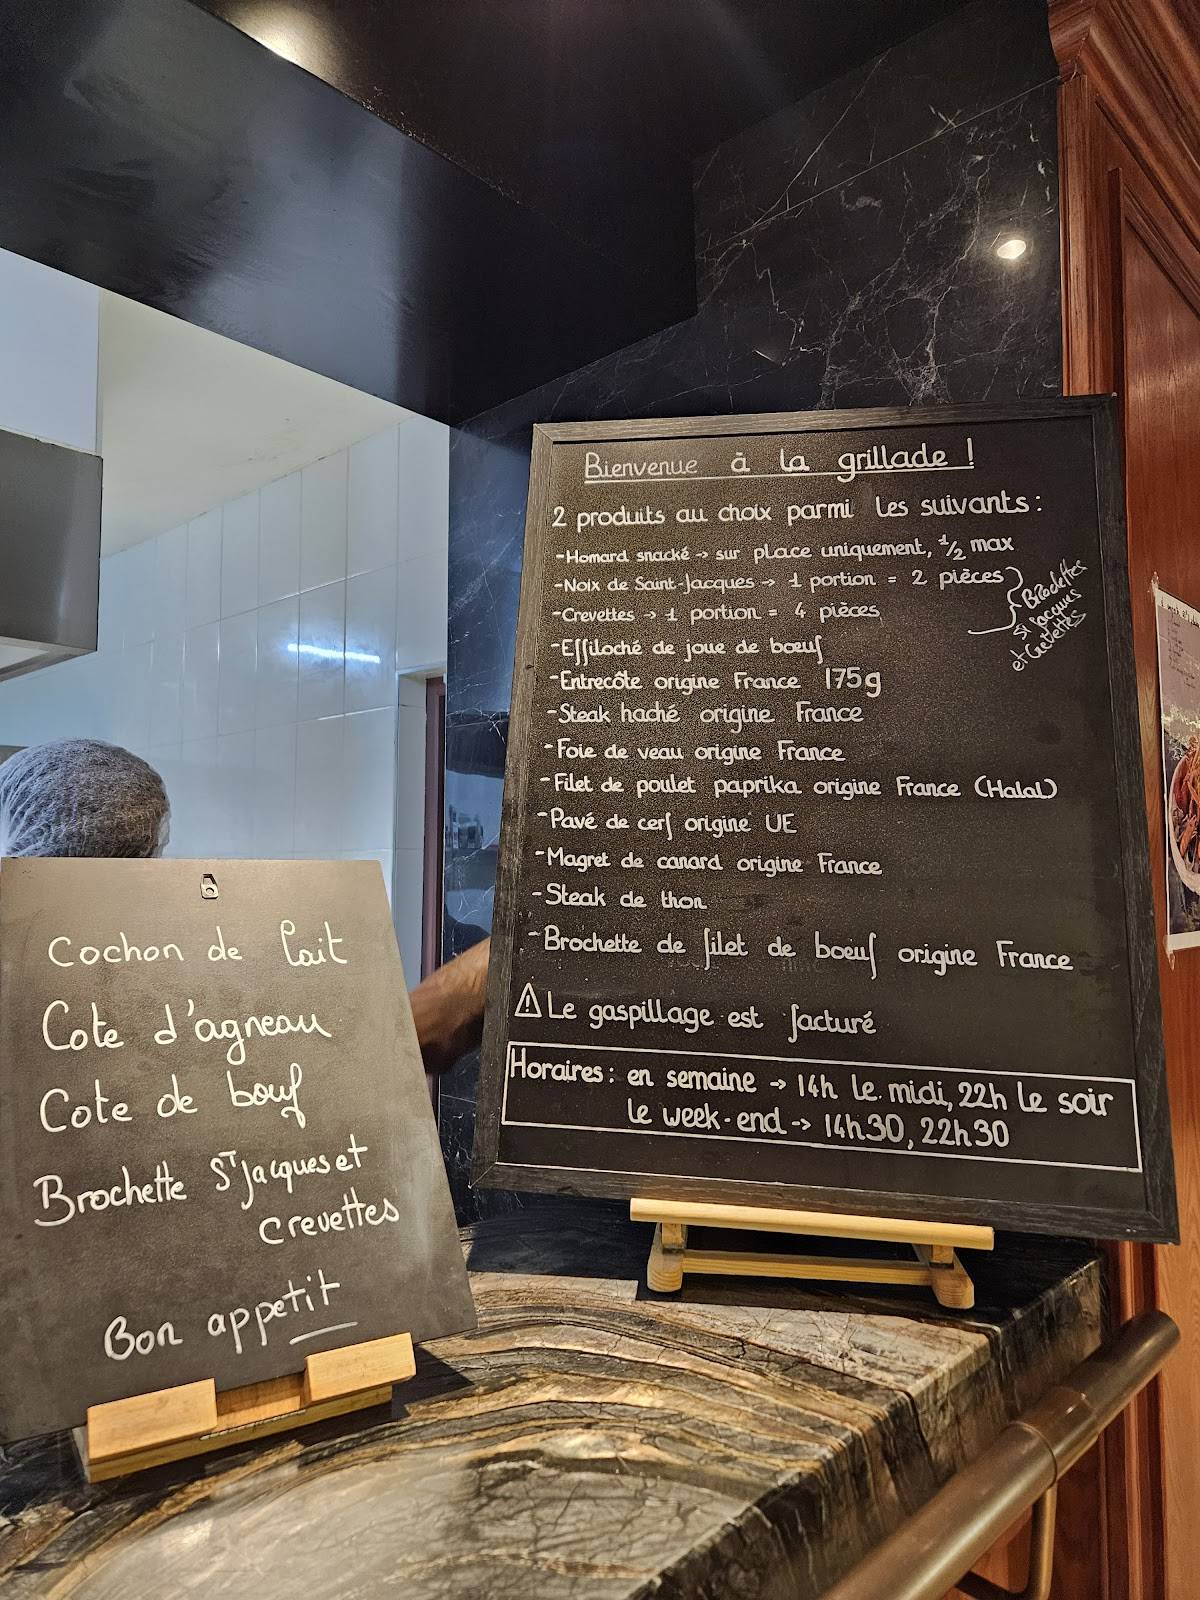 Bienvenue à la grillade !
2 produits au choix parmi les suivants :
- Homard snacké → sur place uniquement, 1/2 max
- Noix de Saint-Jacques → 1 portion = 2 pièces
- Crevettes → 1 portion = 4 pièces
Brochettes
St Jacques
et Crevettes
- Effiloché de joue de bœuf
- Entrecôte origine France 175g
- Steak haché origine France
- Foie de veau origine France
- Filet de poulet paprika origine France (Halal)
- Pavé de cerf origine UE
- Magret de canard origine France
- Steak de thon
- Brochette de filet de boeuf origine France
⚠ Le gaspillage est facturé
Horaires : en semaine → 14h le midi, 22h le soir
le week-end → 14h30, 22h30
Cochon de lait
Cote d'agneau
Cote de bœuf
Brochette St Jacques et
crevettes
Bon appetit